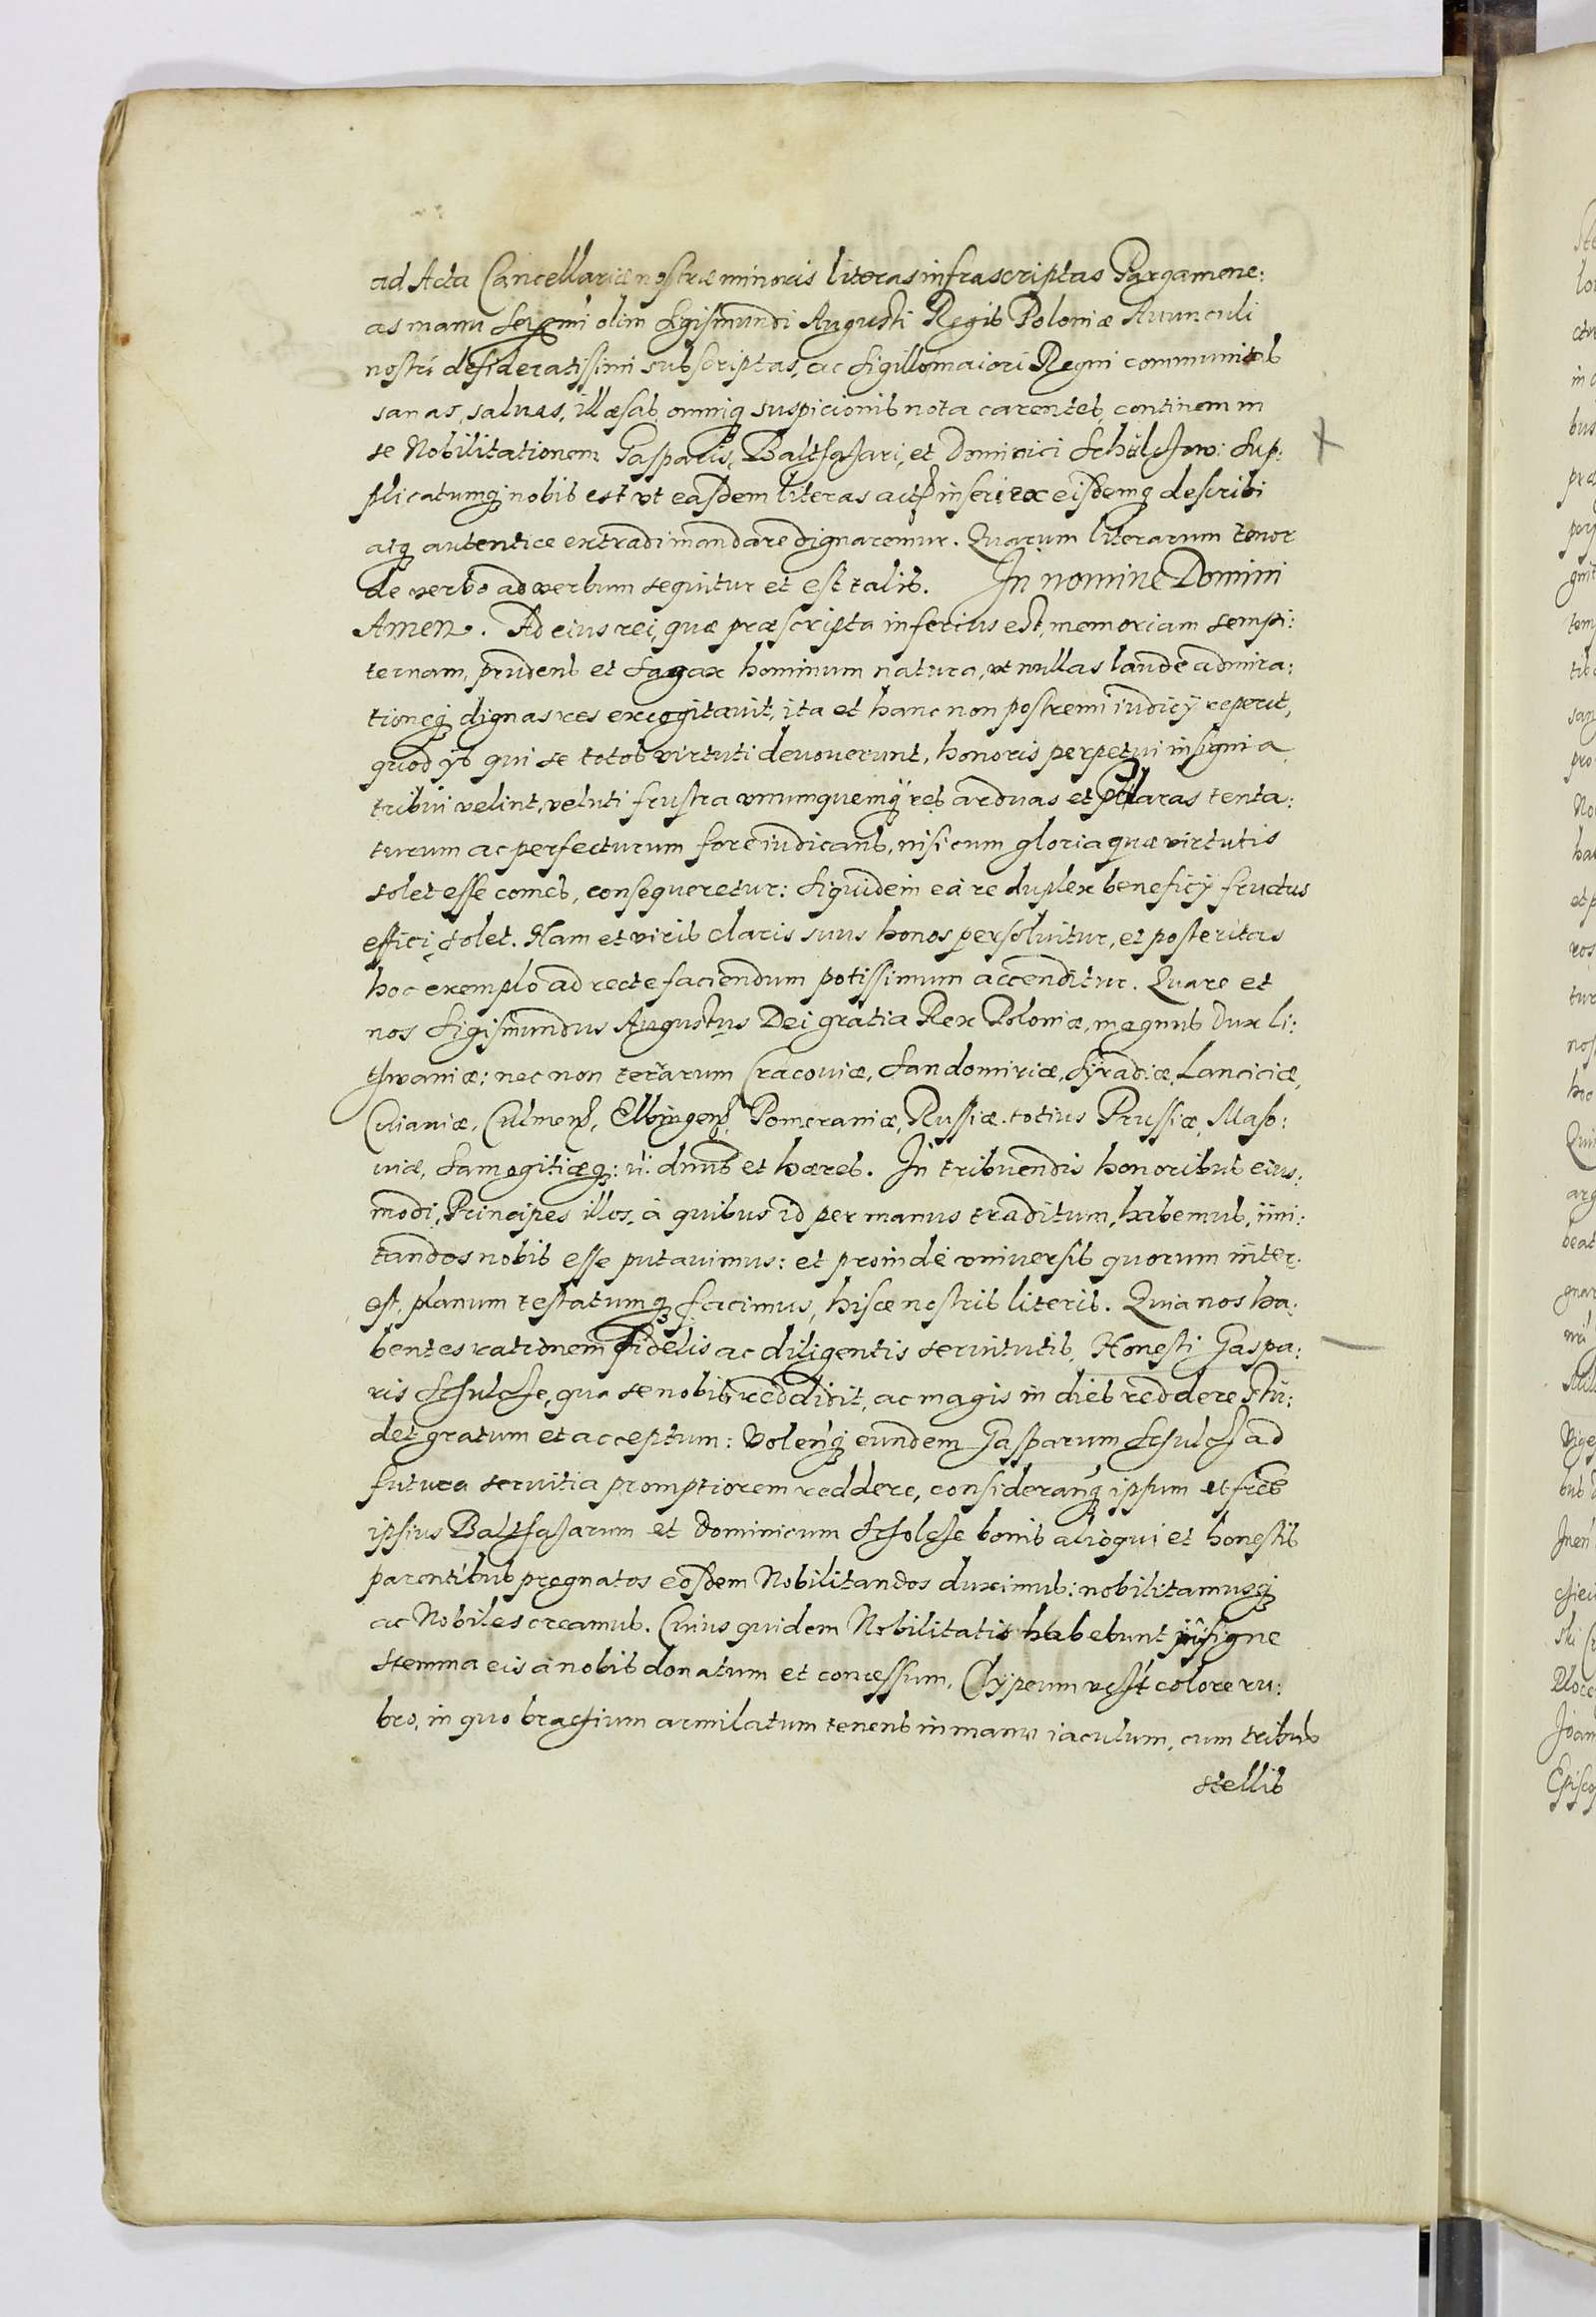 ad Acta Cancellariæ nostræ minoris literas infrascriptas Pargamene:
as manu Serenmi olim Sigismundi Augusti Regis Poloniæ Auunculi
nostri desideratissimi subscriptas, ac sigillo maiori Regni communitas
sanas, saluas, illæsas, omniq suspicionis nota carentes, continen in
se Nobilitationem Gasparis, Balthasari, et Dominici Schülchow: Sup:
plicatumq nobis est vt easdem literas actis inseri ex eisdemq describi
atq autentice extradi mandare dignaremur. Quarum literarum tenor
de verbo ad verbum sequitur et est talis. In nomine Domini
Amen. Ad eius rei, quæ præscripta inferius est, memoriam sempi:
ternam, prudens et sagax hominum natura, vt nullas laude admira:
tioneq dignas res excogitauit, ita et hanc non postremi iudicÿ reperit,
quod ÿs qui se totos virtuti devoverunt, honoris perpetui insignia
tribui velint, veluti frustra vnumquemq res arduas et pclaras tenta:
turum ac perfecturum fore iudicans, nisi cum gloria quæ virtutis
solet esse comes, consequeretur: Siquidem ea re duplex beneficÿ fructus
effici solet. Nam et viris claris suus honos persoluitur, et posteritas
hoc exemplo ad recte faciendum potissimum accenditur. Quare et
nos Sigismundus Augustus Dei gratia Rex Poloniæ, magnus Dux Li:
thwaniæ: nec non terrarum Cracoviæ, Sandomiriæ, Syradiæ, Lanciciæ,
Cuiaviæ, Culmens, Elbingens, Pomeraniæ, Russiæ totius Prussiæ, Maso:
viæ, Samogitiæq: dnus et hæres. In tribuendis honoribus eius:
modi, Principes illos, à quibus id per manus traditum habemus, imi:
tandos nobis esse putavimus: et proinde vniversis quorum inter:
est, planum testatumq facimus, hisce nostris literis. Quia nos ha:
bentes rationem fidelis ac diligentis servitutis, Honesti Gaspa:
ris Schulche, qua se nobis reddidit, ac magis in dies reddere stu:
det gratum et acceptum: Volensq eundem Gasparum Schulch ad
futura servitia promptiorem reddere, consideransq ipsum et fres
ipsius Balthasarum et Dominicum Scholche bonis alioqui et honestis
parentibus prognatos eosdem Nobilitandos duximus: nobilitamusq
ac Nobiles creamus. Cuius quidem Nobilitatis habebunt insigne
stemma eis a nobis donatum et concessum, Clypeum colore ru:
bro, in quo brachium armilatum tenens in manu iaculum, cum tribus
stellis